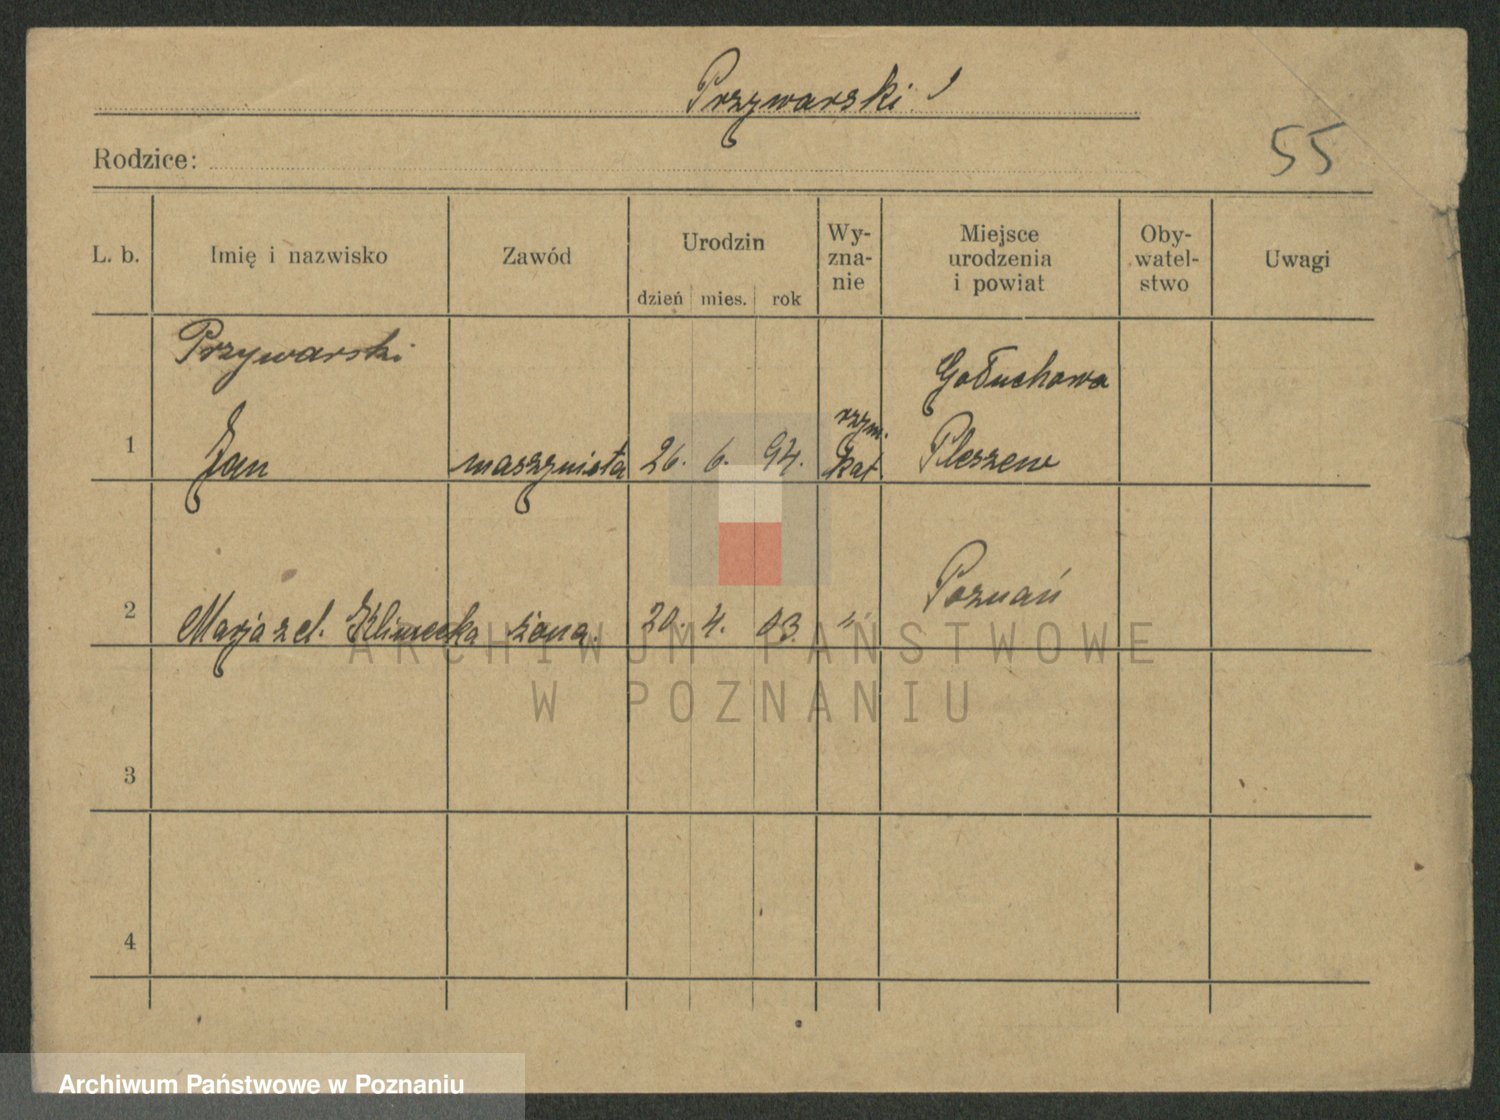 Przywarski
55
Rodzice:
L. b.
Imię i nazwisko
Zawód
Urodzin
dzień mies. rok
Wy-
zna-
nie
Miejsce
urodzenia
i powiat
Oby-
watel-
stwo
Uwagi
Przywarski
1 Jan maszynista 26. 6. 94. rzym. kat. Gołuchowa
Pleszew
2 Marja z d. Klimecka żona. 20. 4. 03. " Poznań
3
4
ARCHIWUM PAŃSTWOWE
W POZNANIU
Archiwum Państwowe w Poznaniu